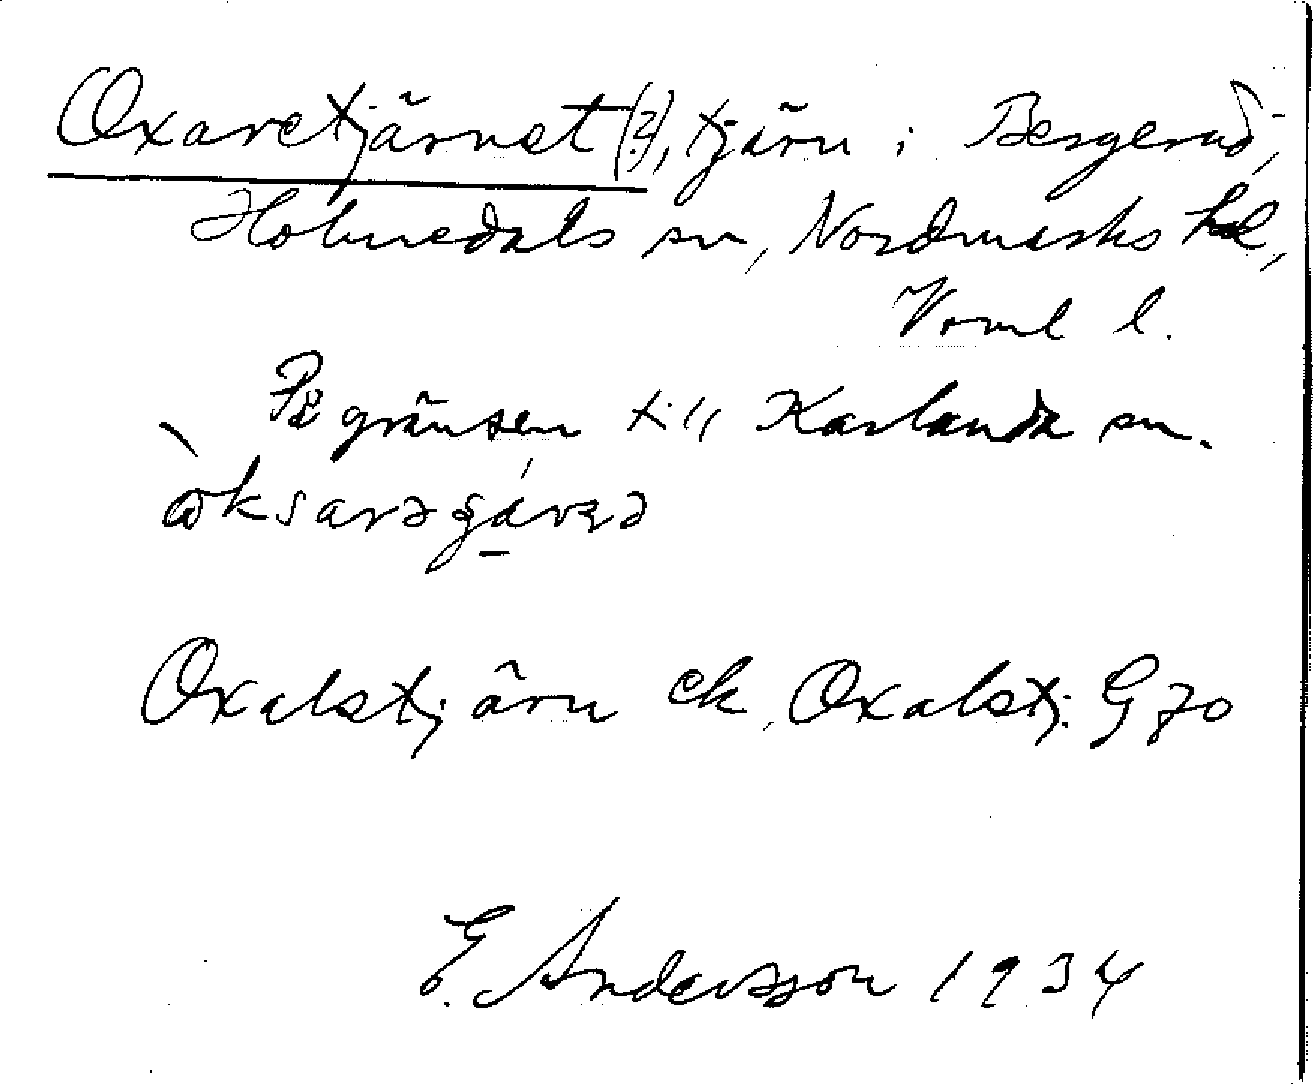 Oxaretjärnet (?), tjärn i Bergerud,
Holmedals sn, Nordmarks hd,
Vrml l.
På gränsen till Karlanda sn.
Oxalstjärn ek, Oxalstj. G 70
E. Andersson 1934